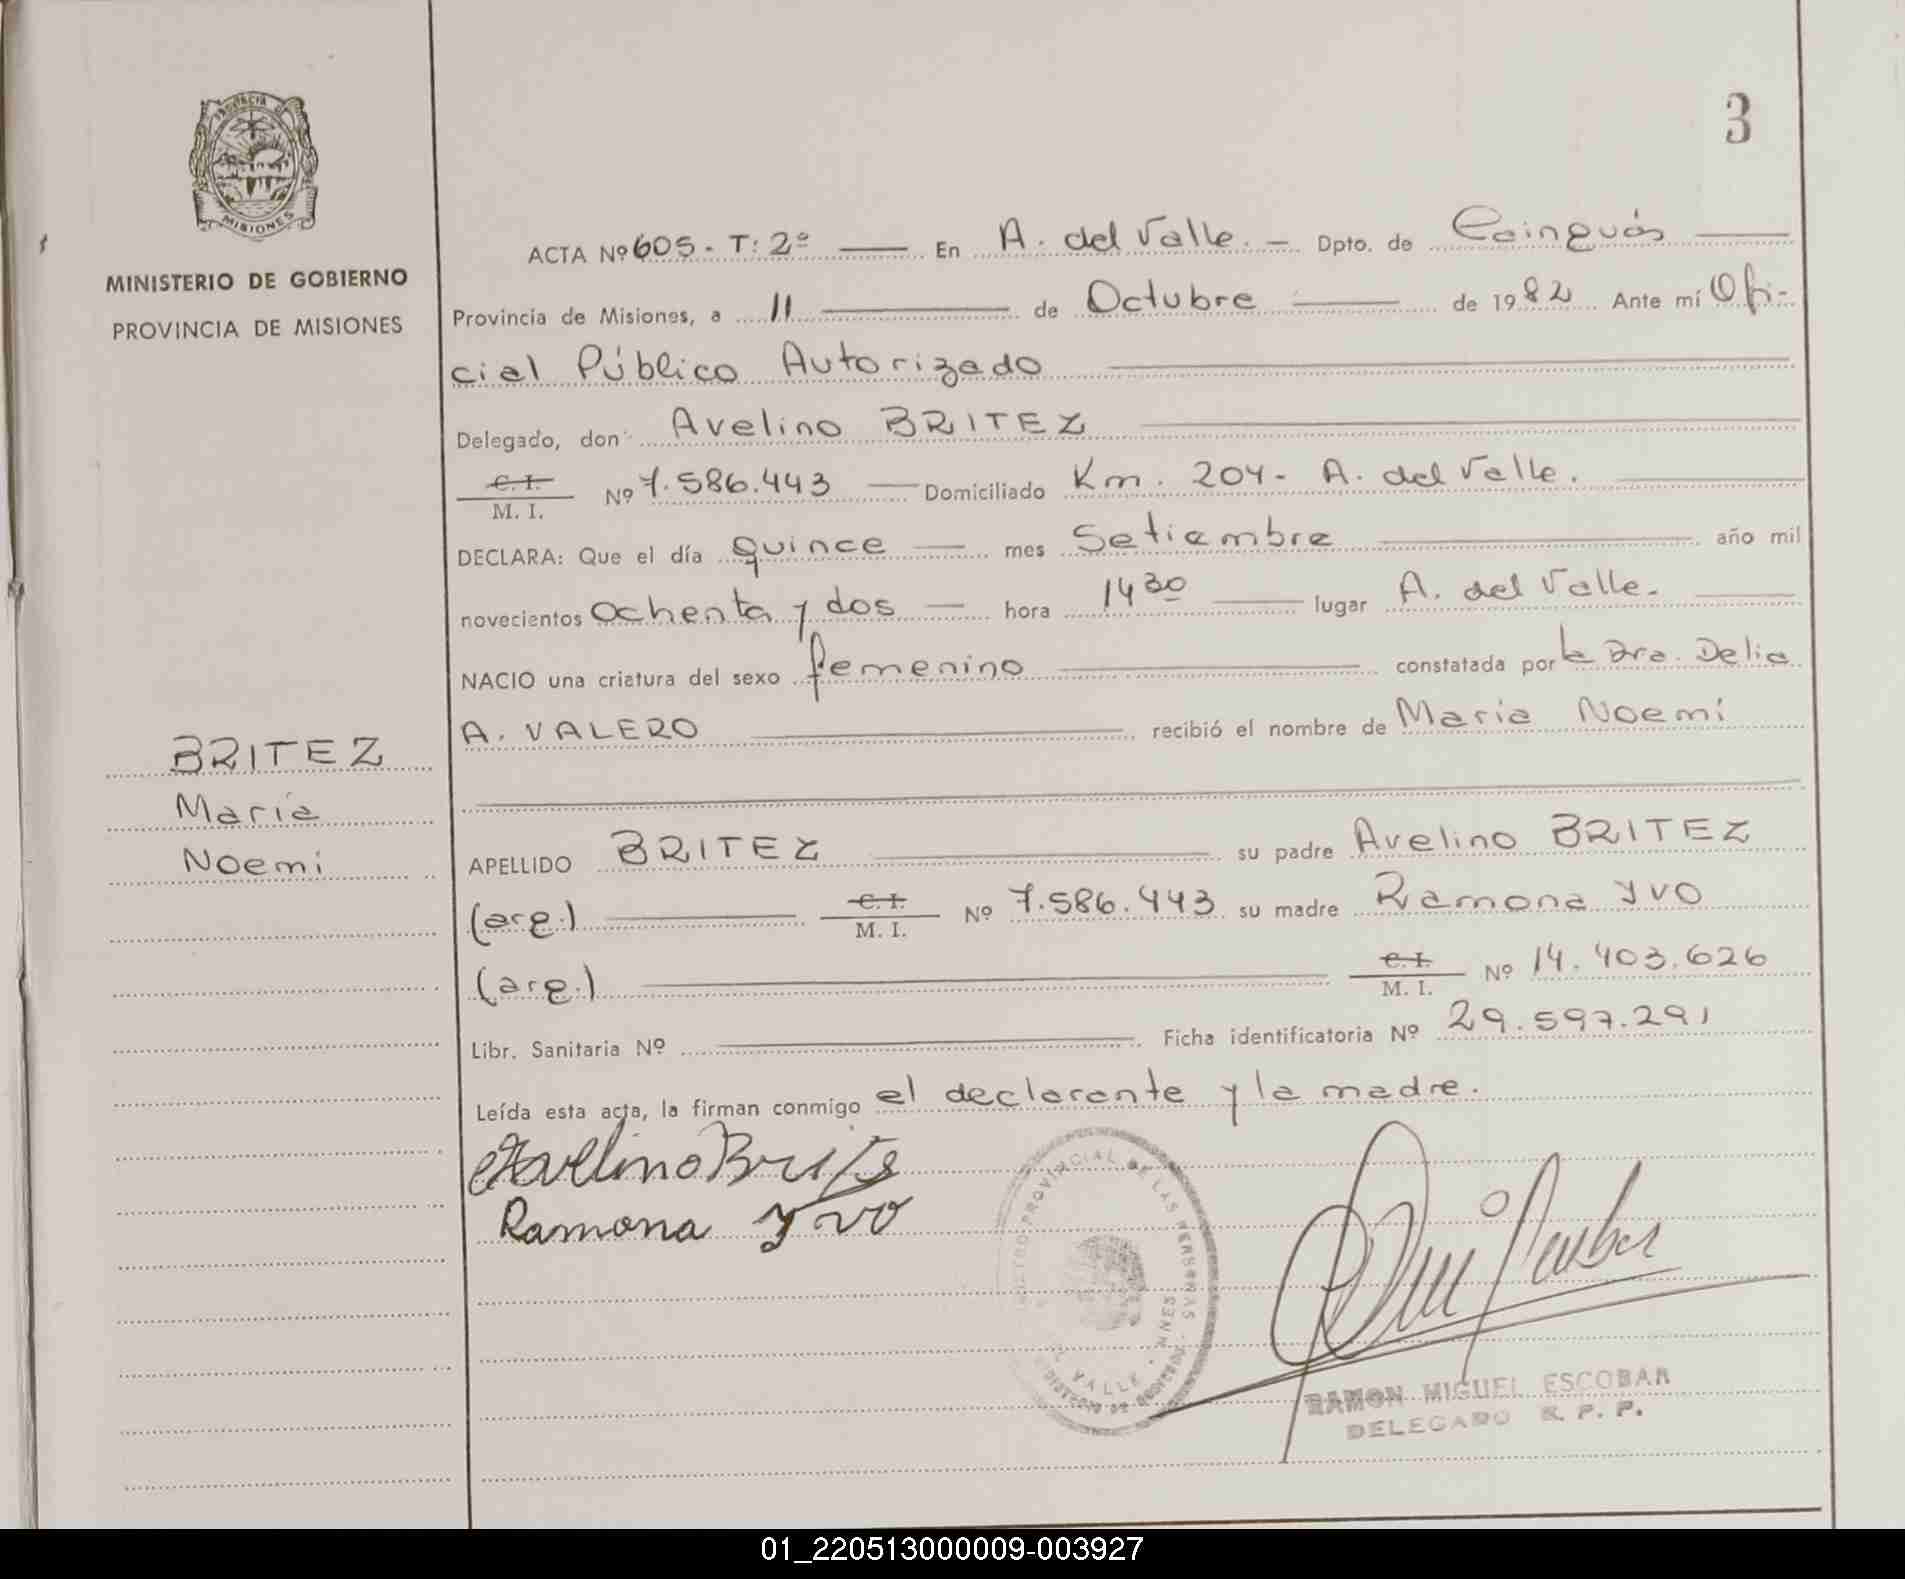 3
PROVINCIA DE
MISIONES
MINISTERIO DE GOBIERNO
PROVINCIA DE MISIONES
BRITEZ
María
Noemí
ACTA Nº 605 - T: 2º En A. del Valle. - Dpto. de Cainguás
Provincia de Misiones, a 11 de Octubre de 1982 Ante mí Ofi-
cial Público Autorizado
Delegado, don Avelino BRITEZ
C. I.
M. I. Nº 7.586.443 Domiciliado Km. 204 - A. del Valle.
DECLARA: Que el día quince mes Setiembre año mil
novecientos ochenta y dos hora 14 30 lugar A. del Valle.
NACIO una criatura del sexo femenino constatada por la Dra. Delia
A. VALERO recibió el nombre de María Noemí
APELLIDO BRITEZ su padre Avelino BRITEZ
(arg.) C. I.
M. I. Nº 7.586.443 su madre Ramona YVO
(arg.) C. I.
M. I. Nº 14.403.626
Libr. Sanitaria Nº Ficha identificatoria Nº 29.597.291
Leída esta acta, la firman conmigo el declarante y la madre.
Avelino Brites
Ramona Yvo
PROVINCIAL DE LAS PERSONAS
VALLE
RAMON MIGUEL ESCOBAR
DELEGADO R. P. P.
01_220513000009-003927